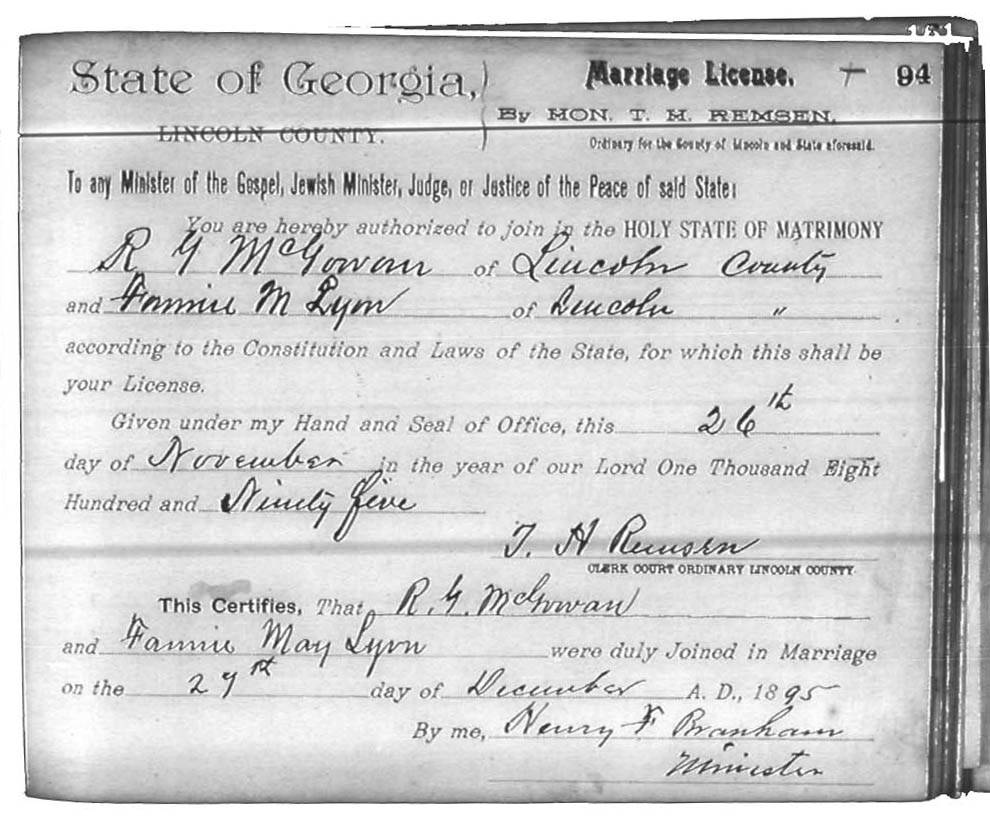 State of Georgia,
LINCOLN COUNTY.
Marriage License. + 94
By HON. T. H. REMSEN.
Ordinary for the County of Lincoln and State aforesaid.
To any Minister of the Gospel, Jewish Minister, Judge, or Justice of the Peace of said State:
You are hereby authorized to join in the HOLY STATE OF MATRIMONY
R G McGowan of Lincoln County
and Fannie M Lyon of Lincoln "
according to the Constitution and Laws of the State, for which this shall be
your License.
Given under my Hand and Seal of Office, this 26th
day of November in the year of our Lord One Thousand Eight
Hundred and Ninety five
T. H Remsen
CLERK COURT ORDINARY LINCOLN COUNTY.
This Certifies, That R. G. McGowan
and Fannie May Lyon were duly Joined in Marriage
on the day of December A. D., 1895
By me, Henry F Branham
Minister